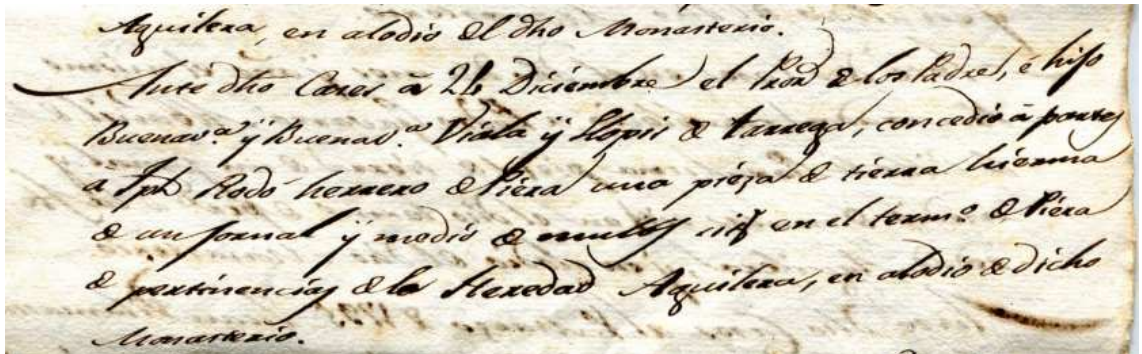 Aguilera, en alodio del dho Monasterio.
Ante dho Cares à 24 Diciembre el Pror de los Padre, é hijo
Buenav.ª ÿ Buenav.ª Viala ÿ Llopis de tarrega, concedió à partes
a Jph Rodó herrero de Piera una pieza de tierra hierma
de un jornal ÿ medio de mulas sit en el term.º de Piera
de pertinencias de la Heredad Aguilera, en alodio de dicho
Monasterio.